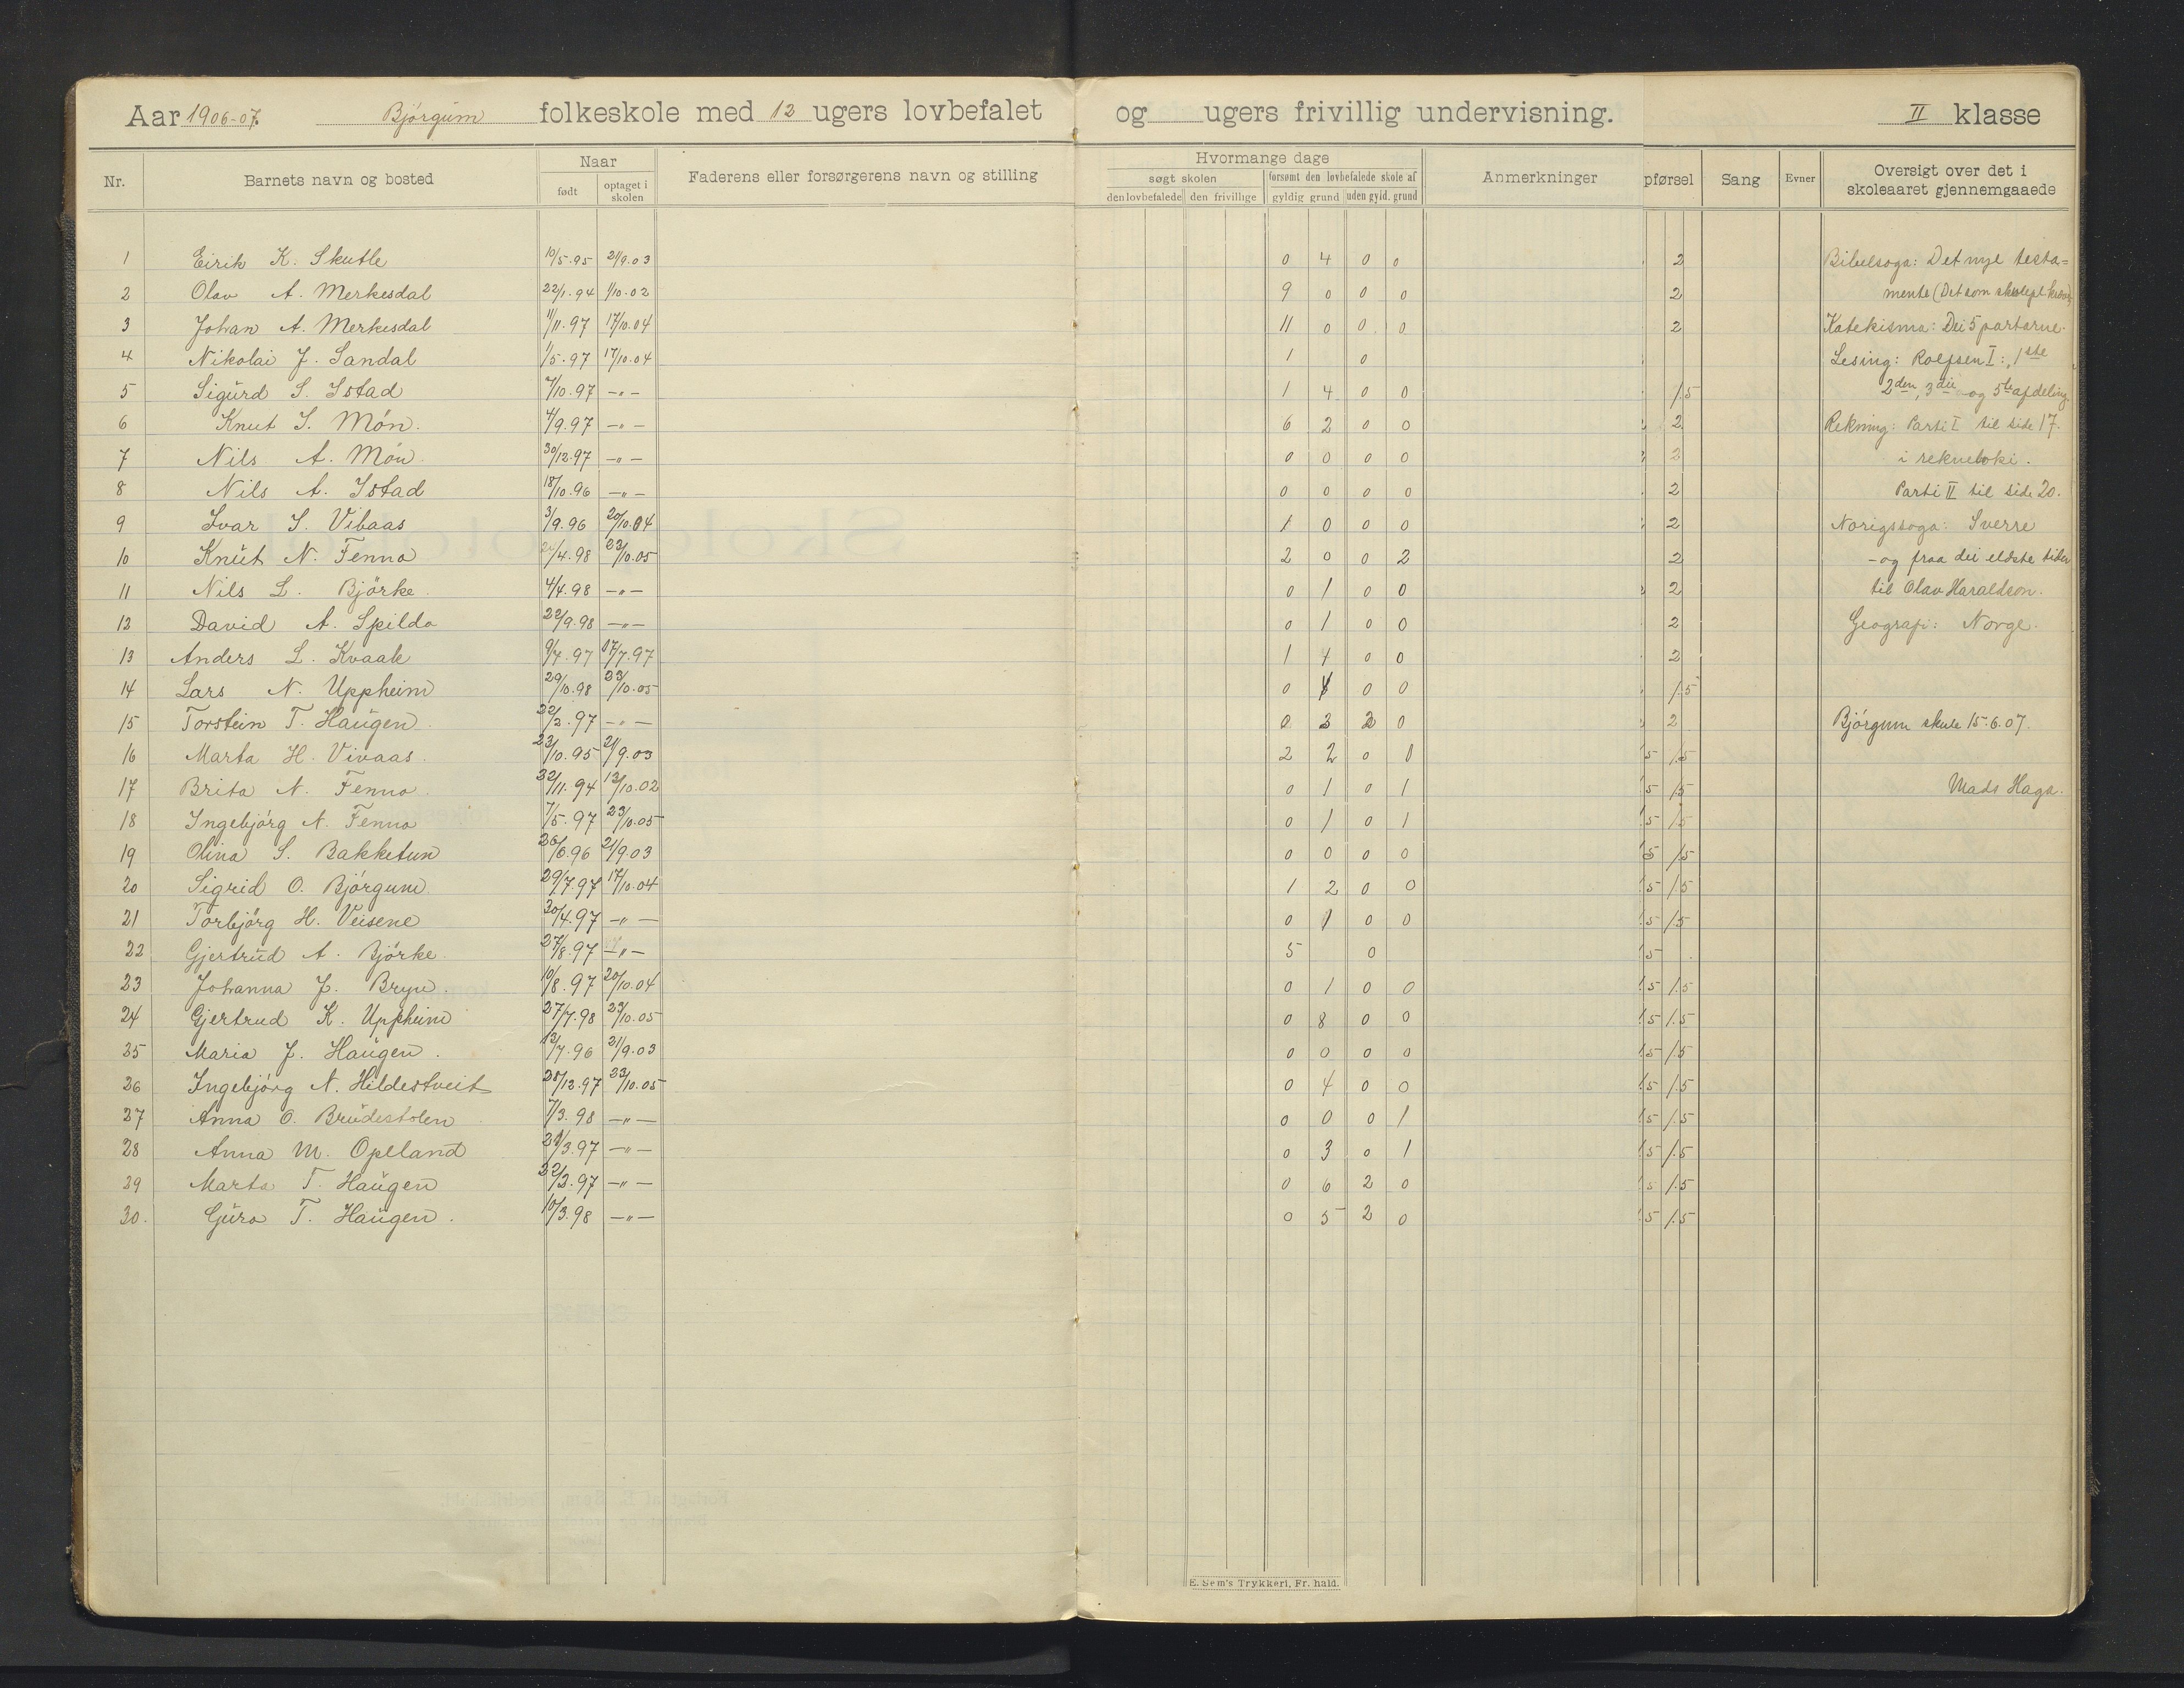 Aar 1906-07. Bjørgum folkeskole med 12 ugers lovbefalet og ugers frivillig undervisning. II klasse
Nr. Barnets navn og bosted Naar født optaget i skolen Faderens eller forsørgerens navn og stilling Hvormange dage søgt skolen den lovbefalede den frivillige forsømt den lovbefalede skole af gyldig grund uden gyld. grund Anmerkninger pførsel Sang Evner Oversigt over det i skoleaaret gjennemgaaede
1 Eirik K. Skutle 10/5.95 21/9.03 0 4 0 0 2 Bibelsoga: Det nye testa=
2 Olav A. Merkesdal 22/1.94 1/10.02 9 0 0 0 2 mente (Det som
3 Johan A. Merkesdal 11/11.97 17/10.04 11 0 0 0 2 Katekisma: Dei 5 partarne.
4 Nikolai J. Sandal 1/5.97 17/10.04 1 0 Lesing: Rolfsen I: 1ste
5 Sigurd S. Istad 7/10.97 -"- 1 4 0 0 1.5 2den, 3die og 5te afdeling.
6 Knut S. Møn. 4/9.97 -"- 6 2 0 0 2 Rekning: Parti I til side 17.
7 Nils A. Møn 30/12.97 -"- 0 0 0 0 2 i rekneboki.
8 Nils A. Istad 18/10.96 -"- 0 0 0 0 2 Parti II til side 20.
9 Ivar S. Vibaas 3/9.96 20/10.04 1 0 0 0 2 Norigssoga: Sverre
10 Knut N. Fenno /4.98 23/10.05 2 0 0 2 2 - og fraa dei eldste tider
11 Nils L. Bjørke. 4/4.98 -"- 0 1 0 0 2 til Olav Haraldson.
12 David A. Spilda 22/9.98 -"- 0 1 0 0 2 Geografi: Norge.
13 Anders L. Kvaale 9/7.97 17/7.97 1 4 0 0 2
14 Lars N. Uppheim 29/10.98 23/10.05 0 0 0 1.5
15 Torstein T. Haugen. 22/2.97 -"- 0 3 2 0 2 Bjørgum skule 15.6.07.
16 Marta H. Vivaas. 23/10.95 21/9.03 2 2 0 0 1.5 1.5
17 Brita N. Fenno. 22/11.94 13/10.02 0 1 0 1 1.5 1.5 Mads Haga.
18 Ingebjørg N. Fenno 7/5.97 23/10.05 0 1 0 1 1.5 1.5
19 Olina S. Bakketun 26/6.96 21/9.03 0 0 0 0 1.5 1.5
20 Sigrid O. Bjørgum. 29/7.97 17/10.04 1 2 0 0 1.5 1.5
21 Torbjørg H. Veisene 20/4.97 -"- 0 1 0 0 1.5 1.5
22 Gjertrud A. Bjørke. 27/8.97 -"- 5 0 1.5
23 Johanna J. Bryn. 10/8.97 20/10.04 0 1 0 0 1.5 1.5
24 Gjertrud K. Uppheim 27/7.98 23/10.05 0 8 0 0 1.5 1.5
25 Maria J. Haugen. 12/7.96 21/9.03 0 0 0 0 1.5 1.5
26 Ingebjørg N. Hildestveit 28/12.97 23/10.05 0 4 0 0 1.5 1.5
27 Anna O. Brudestolen 7/3.98 -"- 0 0 0 1 1.5 1.5
28 Anna M. Opeland 21/3.97 -"- 0 3 0 1 1.5 1.5
29 Marta T. Haugen 22/2.97 -"- 0 6 2 0 1.5 1.5
30. Guro T. Haugen. 10/3.98 -"- 0 5 2 0 1.5 1.5
E. Sem's Trykkeri, Fr.hald.